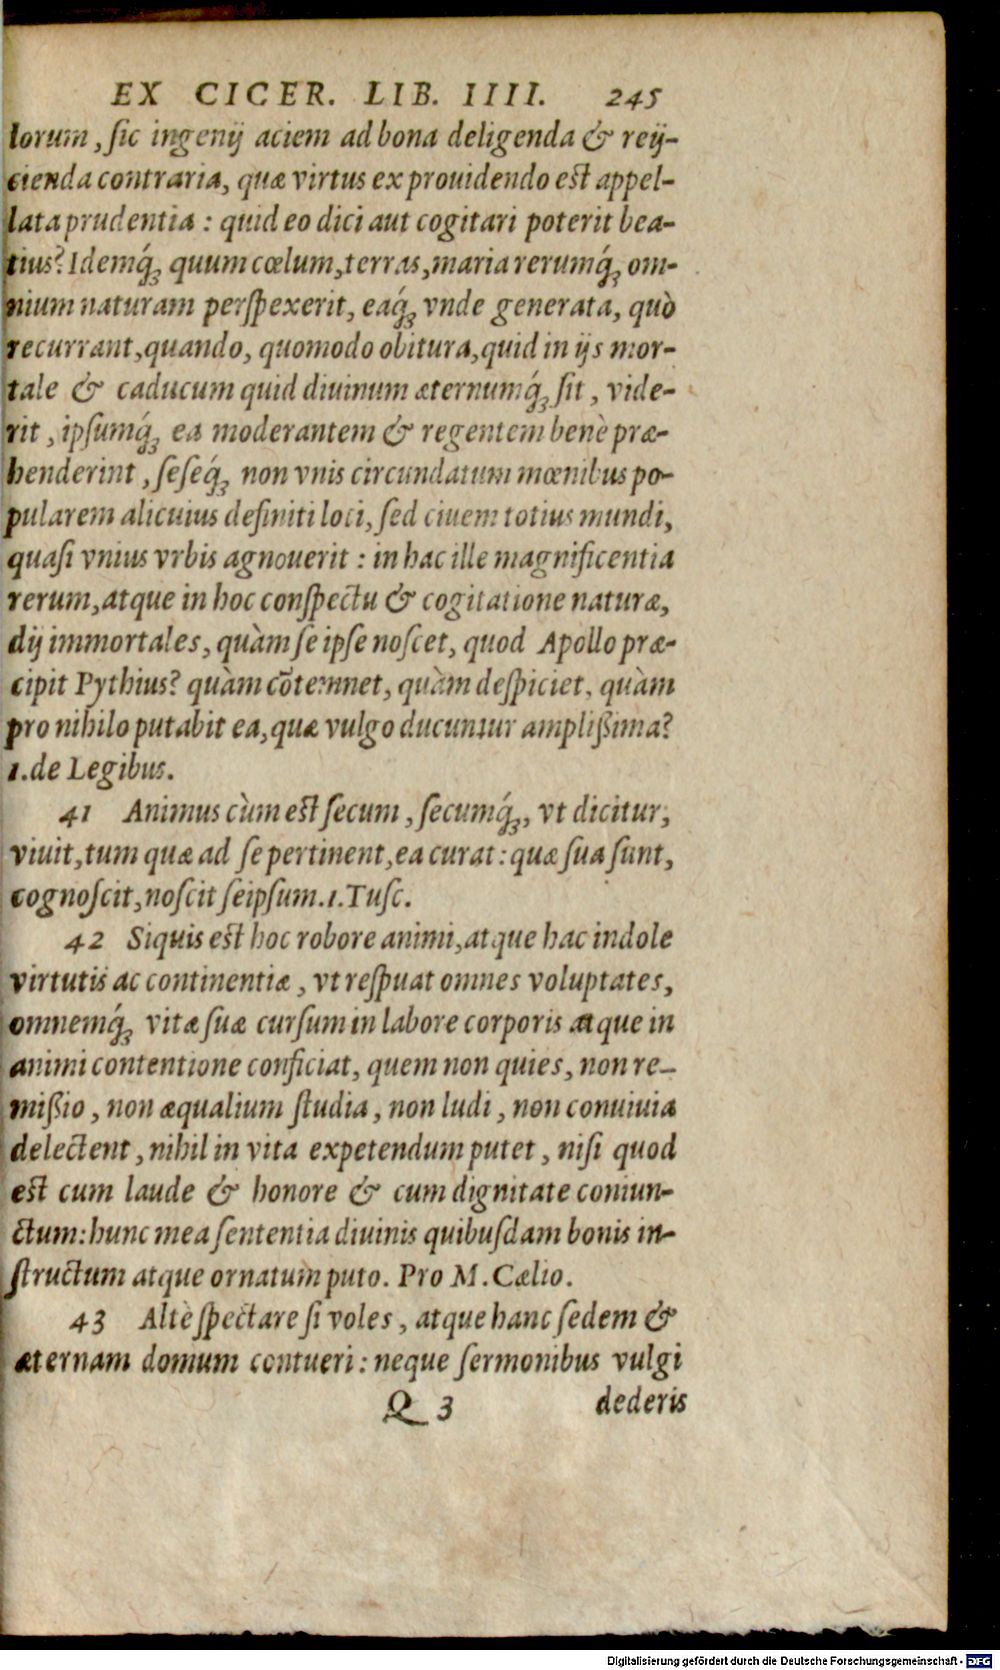 EX CICER. LIB. IIII. 245
lorum, ſic ingenij aciem ad bona deligenda & reij-
cienda contraria, quæ virtus ex prouidendo est appel-
lata prudentia : quid eo dici aut cogitari poterit bea-
tius? Idemq́ꝫ quum cœlum, terras, maria rerumq́ꝫ om-
nium naturam perſpexerit, eaq́ꝫ vnde generata, quò
recurrant, quando, quomodo obitura, quid in ijs mor-
tale & caducum quid diuinum æternumq́ꝫ ſit, vide-
rit, ipſumq́ꝫ ea moderantem & regentem benè præ-
henderint, ſeſeq́ꝫ non vnis circundatum mœnibus po-
pularem alicuius definiti loci, ſed ciuem totius mundi,
quaſi vnius vrbis agnouerit : in hac ille magnificentia
rerum, atque in hoc conſpectu & cogitatione naturæ,
dij immortales, quàm ſe ipſe noſcet, quod Apollo præ-
cipit Pythius? quàm cōtemnet, quàm deſpiciet, quàm
pro nihilo putabit ea, quæ vulgo ducuntur ampliſſima?
1. de Legibus.
41 Animus cùm est ſecum, ſecumq́ꝫ, vt dicitur,
viuit, tum quæ ad ſe pertinent, ea curat : quæ ſua ſunt,
cognoſcit, noſcit ſeipſum. 1. Tuſc.
42 Siquis est hoc robore animi, atque hac indole
virtutis ac continentiæ, vt reſpuat omnes voluptates,
omnemq́ꝫ vitæ ſuæ curſum in labore corporis atque in
animi contentione conficiat, quem non quies, non re-
miſſio, non æqualium ſtudia, non ludi, non conuiuia
delectent, nihil in vita expetendum putet, niſi quod
est cum laude & honore & cum dignitate coniun-
ctum: hunc mea ſententia diuinis quibuſdam bonis in-
ſtructum atque ornatum puto. Pro M. Cælio.
43 Altè ſpectare ſi voles, atque hanc ſedem &
æternam domum contueri : neque ſermonibus vulgi
Q 3 dederis
Digitalisierung gefördert durch die Deutsche Forschungsgemeinschaft - DFG